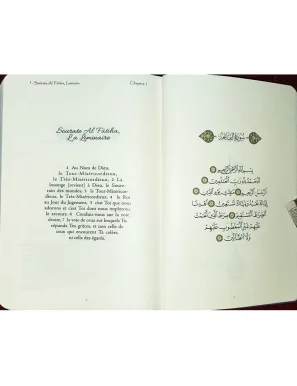 1. Sourate Al Fâtiha, Liminaire
Chapitre 1
Sourate Al Fâtiha,
La Liminaire
1. Au Nom de Dieu,
le Tout-Miséricordieux,
le Très-Miséricordieux, 2. La
louange [revient] à Dieu, le Souve-
rain des mondes, 3. le Tout-Miséricor-
dieux, le Très-Miséricordieux, 4. le Roi
au Jour du Jugement, 5. c'est Toi que nous
adorons et c'est Toi dont nous implorons
le secours. 6. Conduis-nous sur la voie
droite, 7. la voie de ceux sur lesquels Tu
répands Tes grâces, et non celle de
ceux qui encourent Ta colère,
ni celle des égarés.
بسم الله الرحمن الرحيم
الحمد لله رب العالمين
الرحمن الرحيم مالك يوم الدين
إياك نعبد وإياك نستعين اهدنا
الصراط المستقيم صراط الذين أنعمت
عليهم غير المغضوب عليهم
ولا الضالين